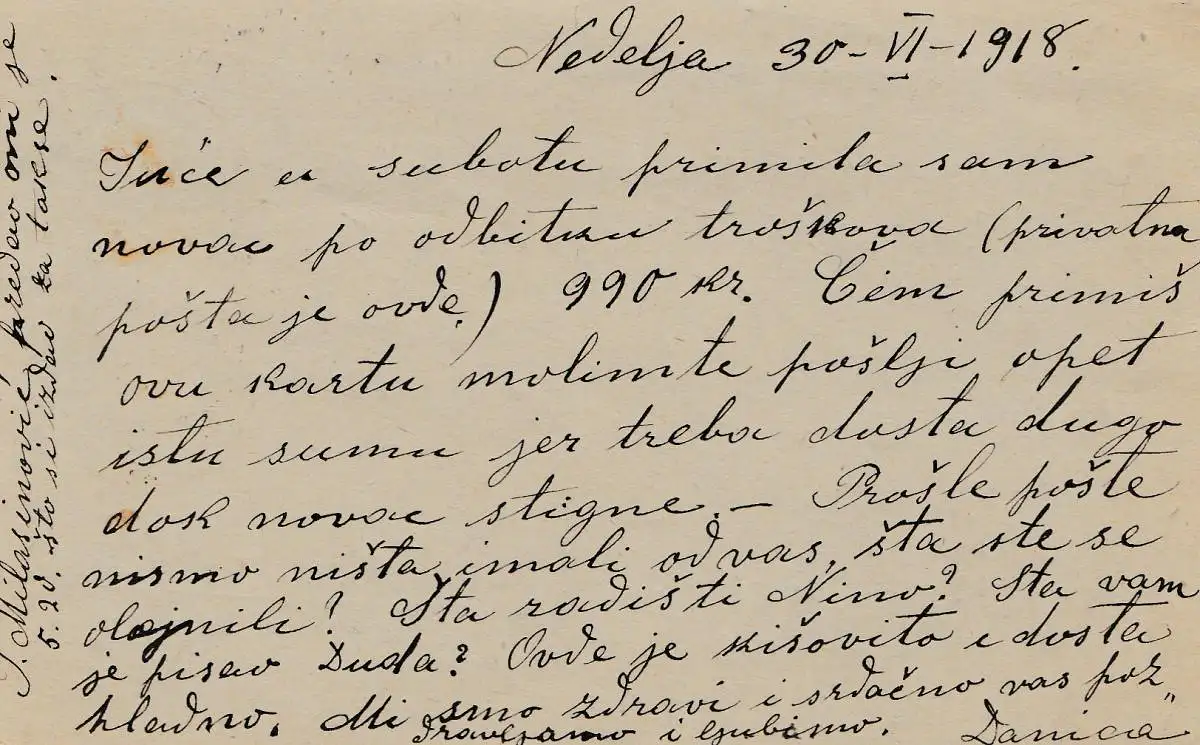 Neđelja 30-VI-1918.
Juče u subotu primila sam
novac po odbitku troškova (privatna
pošta je ovđe.) 990 kr. Čim primiš
ovu kartu molimte pošlji opet
istu sumu jer treba dosta dugo
dok novac stigne. — Prošle pošte
nismo ništa imali od vas, šta ste se
oljenili? Šta radišti Nino? Šta vam
je pisao Duda? Ovđe je kišovito i dosta
hladno. Mi smo zdravi i srdačno vas poz„
dravljamo i ljubimo. Danica
J. Milasinović, predao mi je
5.20. što si izdao za takse.